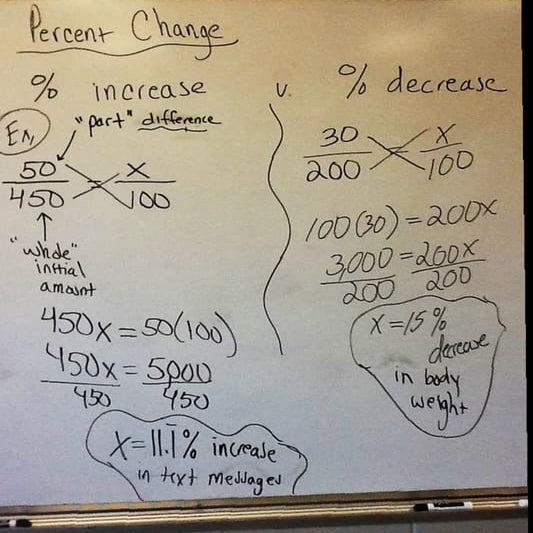 Percent Change
% increase v. % decrease
Ex,
"part" difference
50/450 = x/100
"whole"
initial
amount
450x = 50(100)
450x/450 = 5,000/450
x = 11.1̅% increase
in text messages
30/200 = x/100
100(30) = 200x
3,000/200 = 200x/200
x = 15%
decrease
in body
weight